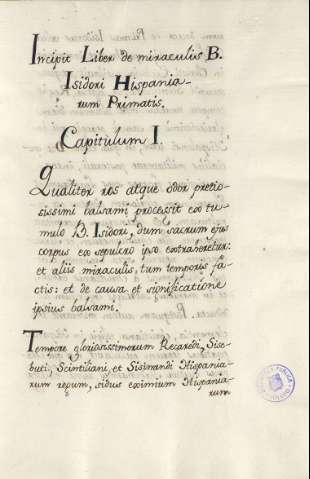 Incipit Liber de miraculis B.
Isidori Hispania-
rum Primatis.
Capitulum I.
Qualiter ros atque odor pretio-
sissimi balsami processit ex tu-
mulo B. Isidori, dum sacrum ejus
corpus ex sepulcro ipso extraheretur:
et aliis miraculis, tum temporis fac-
tis: et de causa et significatione
ipsius balsami.
Tempore gloriosissimorum Recaredi, Sise-
buti, Scintiliani, et Sisinandi Hispania-
rum regum, sidus eximium Hispania-
rum